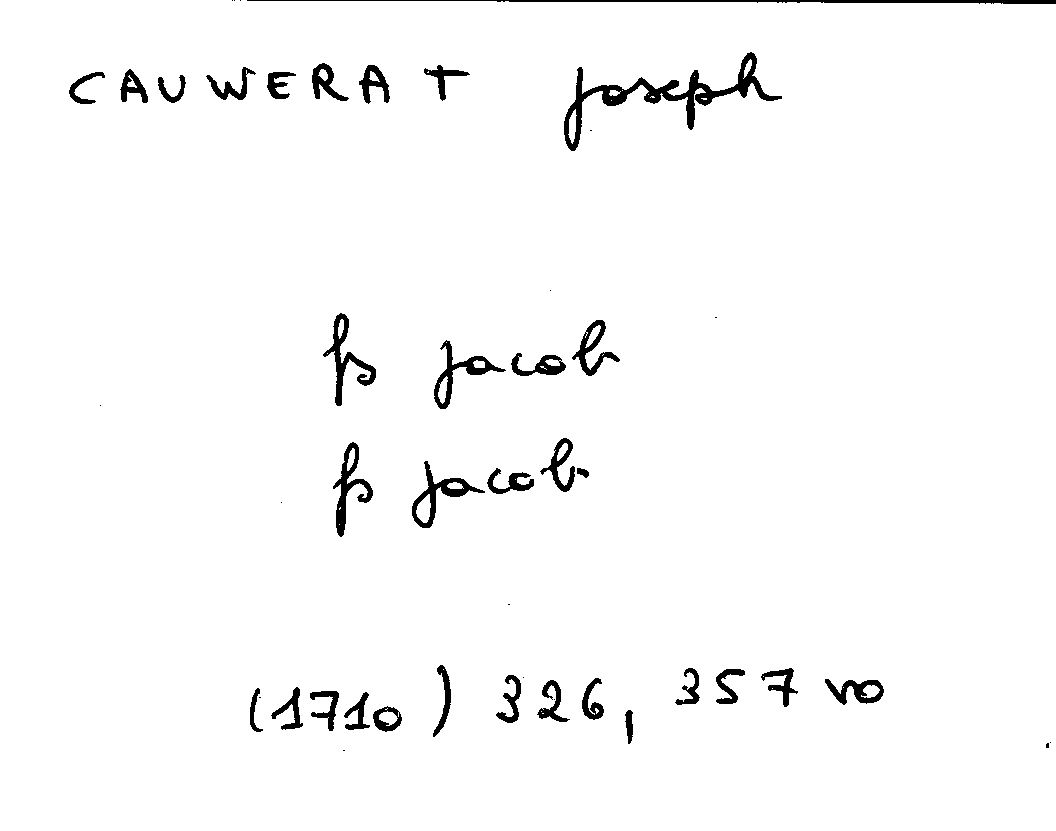 CAUWERAT joseph
fs jacob
fs jacob
(1710) 326, 357 vo